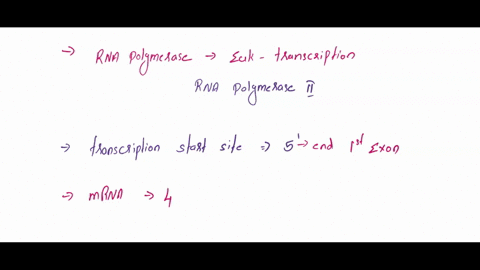 → RNA polymerase → Euk - transcription
RNA polymerase II
→ transcription start site ⇒ 5' → end 1st Exon
→ mRNA → 4